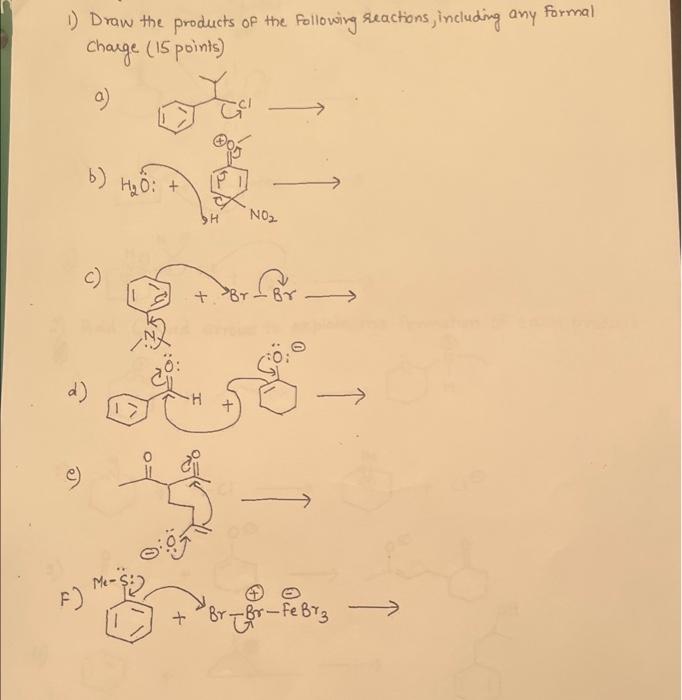 1) Draw the products of the following reactions, including any formal
charge (15 points)
a)
Cl
b) H₂Ö: +
⊕O
H
NO₂
c)
+ Br-Br
N
d)
:Ö:
H
+
:Ö:⊖
e)
O
O
⊖:Ö:
F) Me-S̈:
+ Br-Br-FeBr₃
⊕ ⊖